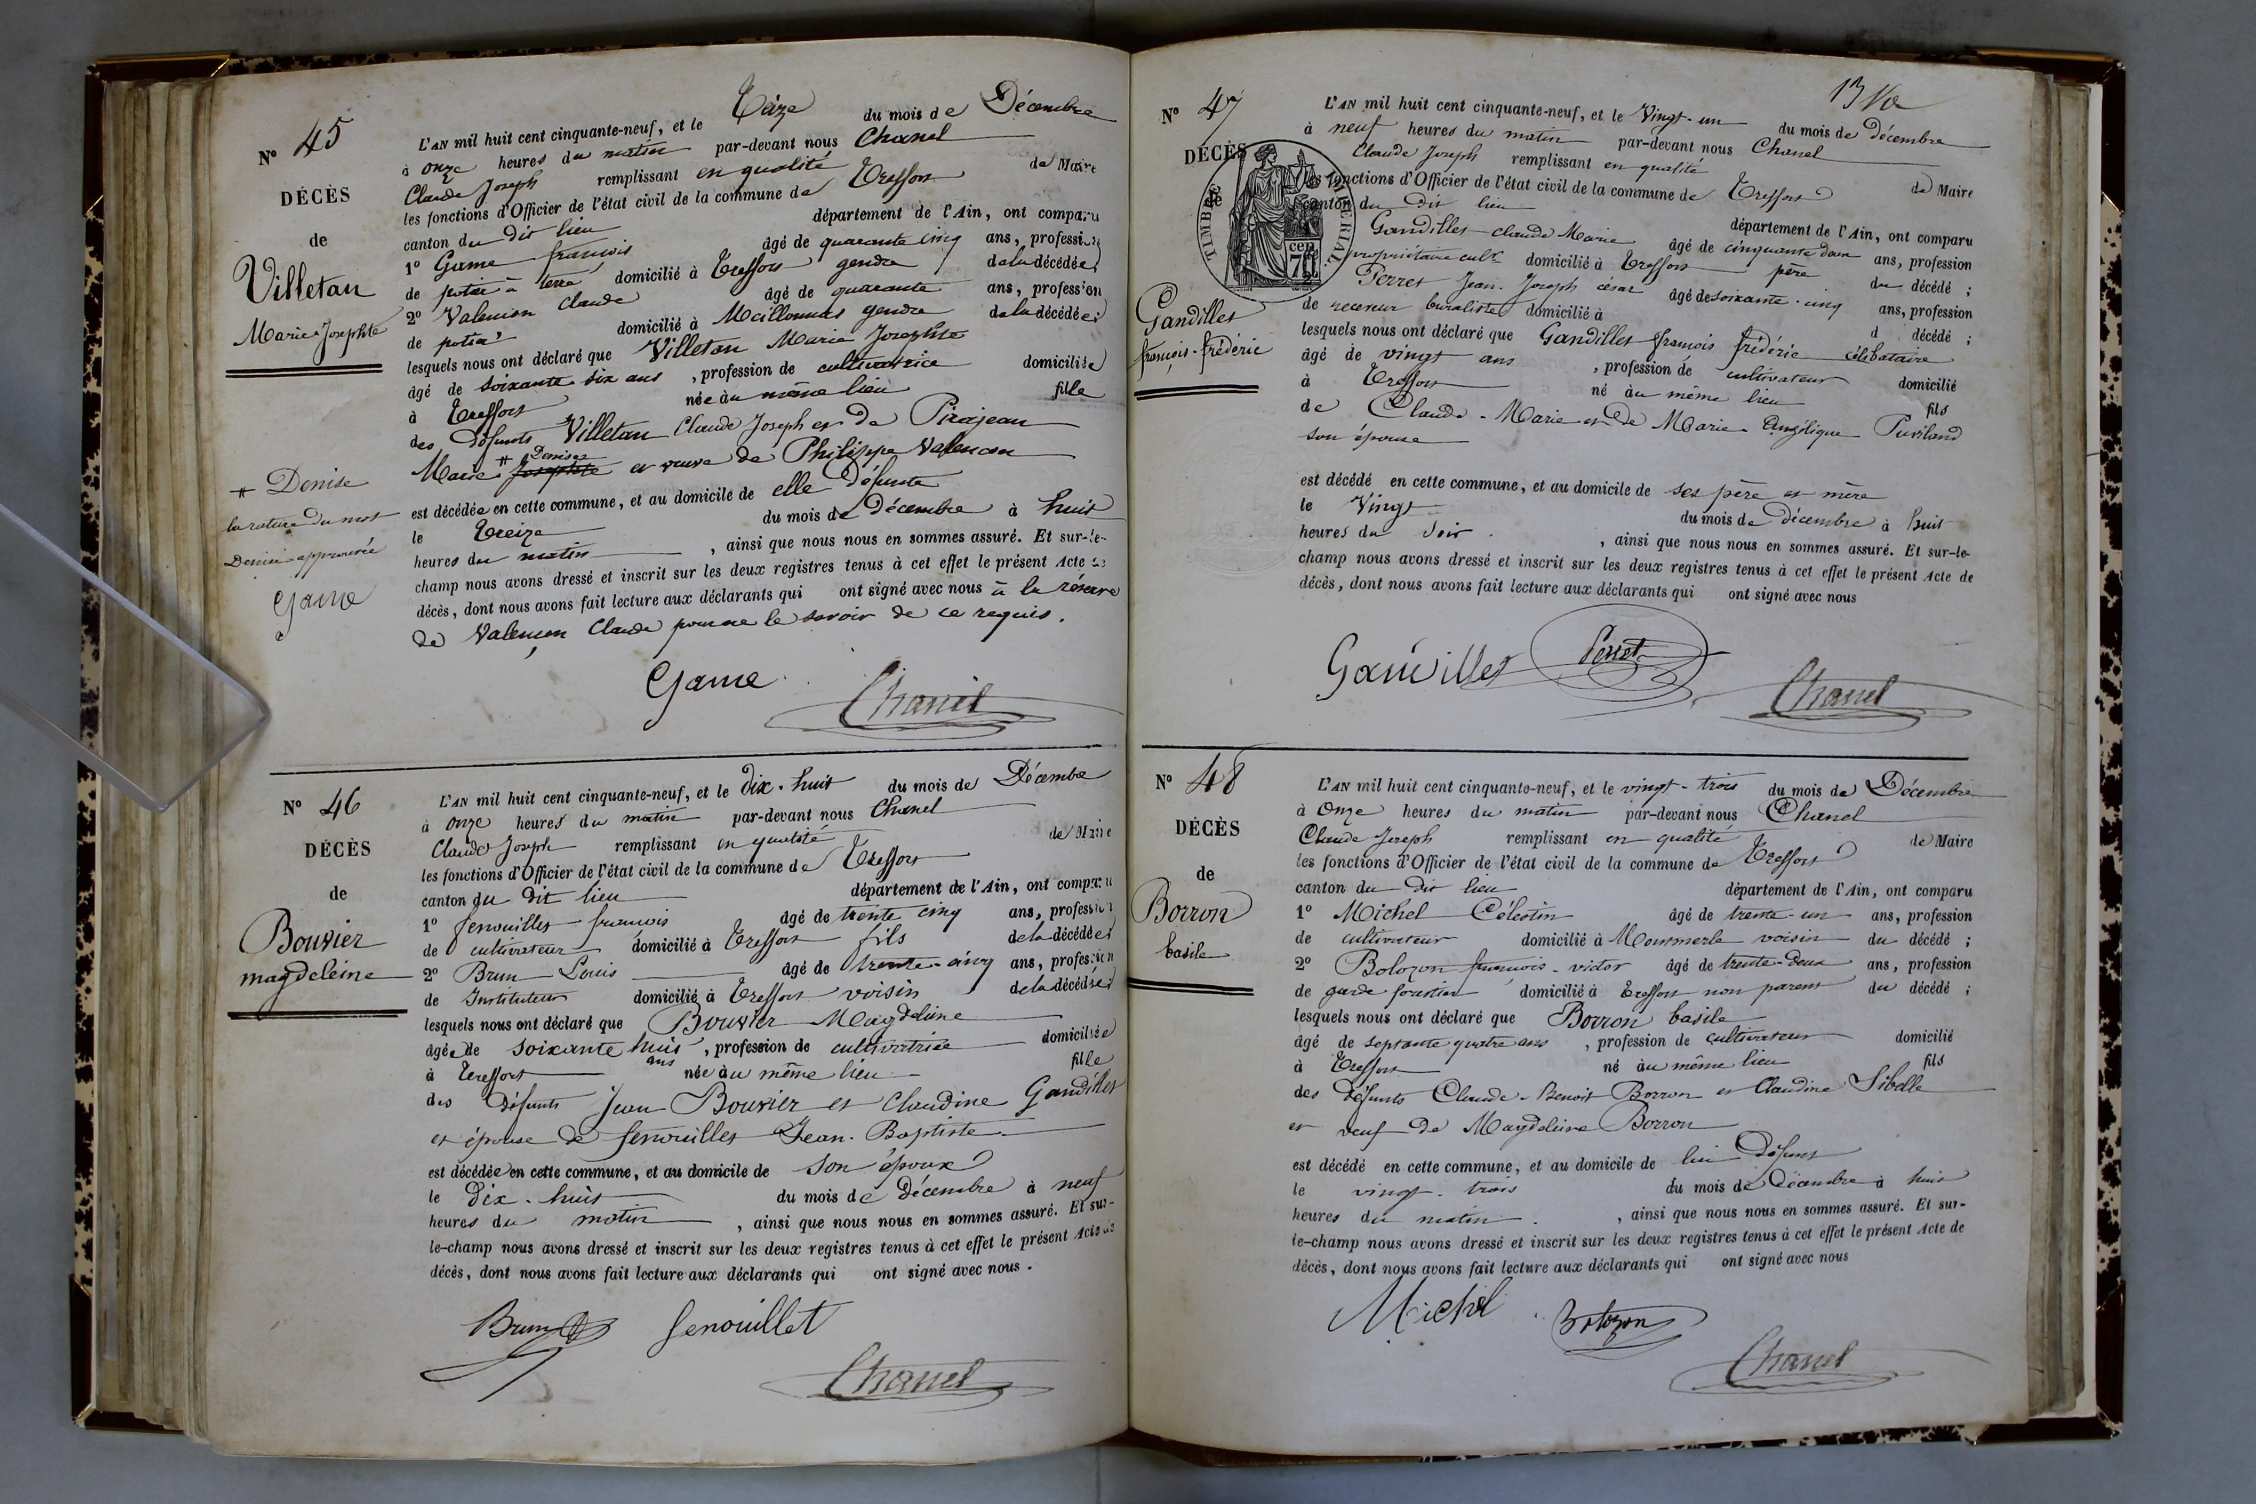 N° 45
DÉCÈS
de
Villetan
Marie Josephte
L'AN mil huit cent cinquante-neuf, et le Treize du mois de Décembre
à onze heures du matin par-devant nous Chanel
Claude Joseph remplissant en qualité de Maire
les fonctions d'Officier de l'état civil de la commune de Treffort
canton du dit lieu département de l'Ain, ont comparu
1° Game francois âgé de quarante cinq ans, profession
de potier à terre domicilié à Treffort gendre de la décédée;
2° Valencon Claude âgé de quarante ans, profession
de potier domicilié à Meillonnas gendre de la décédée;
lesquels nous ont déclaré que Villetan Marie Josephte
âgé de soixante six ans, profession de cultivatrice domiciliée
à Treffort née au même lieu fille
des défunts Villetan Claude Joseph et de Pirajean
Marie # Denise Josephte et veuve de Philippe Valencon
est décédée en cette commune, et au domicile de elle défunte
le Treize du mois de Décembre à huit
heures du matin, ainsi que nous nous en sommes assuré. Et sur-le-
champ nous avons dressé et inscrit sur les deux registres tenus à cet effet le présent Acte de
décès, dont nous avons fait lecture aux déclarants qui ont signé avec nous à la réserve
de Valençon Claude pour ne le savoir de ce requis.
# Denise
la rature du mot
Denise approuvée
Game
Game
Chanel
N° 46
DÉCÈS
de
Bouvier
magdeleine
L'AN mil huit cent cinquante-neuf, et le Dix-huit du mois de Décembre
à onze heures du matin par-devant nous Chanel
Claude Joseph remplissant en qualité de Maire
les fonctions d'Officier de l'état civil de la commune de Treffort
canton du dit lieu département de l'Ain, ont comparu
1° fenouillet francois âgé de trente cinq ans, profession
de cultivateur domicilié à Treffort fils de la décédée;
2° Brun Louis âgé de trente-cinq ans, profession
de Instituteur domicilié à Treffort voisin de la décédée;
lesquels nous ont déclaré que Bouvier Magdeleine
âgée de soixante huit ans, profession de cultivatrice domiciliée
à Treffort née au même lieu fille
des défunts Jean Bouvier et Claudine Gandillet
et épouse de fenouillet Jean-Baptiste
est décédée en cette commune, et au domicile de son époux
le Dix-huit du mois de Décembre à neuf
heures du matin, ainsi que nous nous en sommes assuré. Et sur-
le-champ nous avons dressé et inscrit sur les deux registres tenus à cet effet le présent Acte de
décès, dont nous avons fait lecture aux déclarants qui ont signé avec nous.
Brun fenouillet
Chanel
N° 47
DÉCÈS
de
TIMBRE IMPERIAL
cen 70
Gandillet
françois-frédéric
L'AN mil huit cent cinquante-neuf, et le Vingt-un du mois de décembre
à neuf heures du matin par-devant nous Chanel
Claude Joseph remplissant en qualité de Maire
les fonctions d'Officier de l'état civil de la commune de Treffort
canton du dit lieu département de l'Ain, ont comparu
Gandillet claude Marie âgé de cinquante deux ans, profession
propriétaire cultr domicilié à Treffort père du décédé;
Perret Jean-Joseph césar âgé de soixante-cinq ans, profession
de receveur buraliste domicilié à d décédé;
lesquels nous ont déclaré que Gandillet francois frédéric célibataire
âgé de vingt ans, profession de cultivateur domicilié
à Treffort né au même lieu fils
de Claude-Marie et de Marie-Angélique Puviland
son épouse
est décédé en cette commune, et au domicile de ses père et mère
le Vingt du mois de Décembre à huit
heures du soir, ainsi que nous nous en sommes assuré. Et sur-le-
champ nous avons dressé et inscrit sur les deux registres tenus à cet effet le présent Acte de
décès, dont nous avons fait lecture aux déclarants qui ont signé avec nous
Gandillet Perret
Chanel
N° 48
DÉCÈS
de
Borron
basile
L'AN mil huit cent cinquante-neuf, et le vingt-trois du mois de Décembre
à Onze heures du matin par-devant nous Chanel
Claude Joseph remplissant en qualité de Maire
les fonctions d'Officier de l'état civil de la commune de Treffort
canton du dit lieu département de l'Ain, ont comparu
1° Michel Célestin âgé de trente-un ans, profession
de cultivateur domicilié à Montmerle voisin du décédé;
2° Bolozon francois-victor âgé de trente-deux ans, profession
de garde forestier domicilié à Treffort non parent du décédé;
lesquels nous ont déclaré que Borron basile
âgé de septante quatre ans, profession de cultivateur domicilié
à Treffort né au même lieu fils
des défunts Claude-Benoit Borron et Claudine Sibelle
et veuf de Magdeleine Borron
est décédé en cette commune, et au domicile de lui défunt
le vingt-trois du mois de Décembre à huit
heures du matin, ainsi que nous nous en sommes assuré. Et sur-
le-champ nous avons dressé et inscrit sur les deux registres tenus à cet effet le présent Acte de
décès, dont nous avons fait lecture aux déclarants qui ont signé avec nous
Michel Bolozon
Chanel